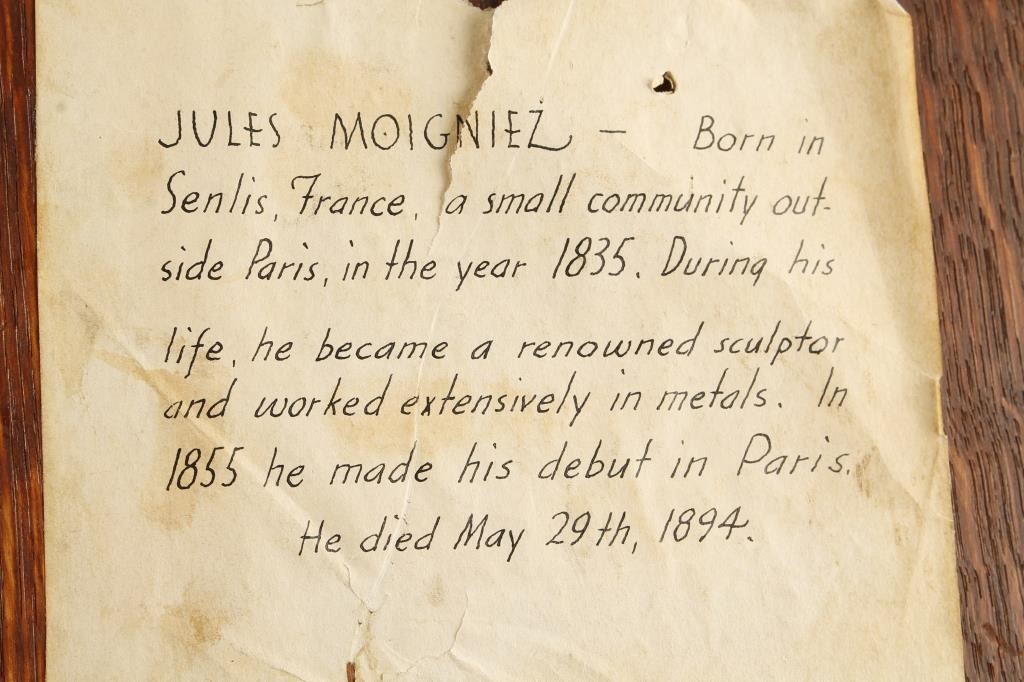 JULES MOIGNIEZ – Born in
Senlis, France, a small community out-
side Paris, in the year 1835. During his
life, he became a renowned sculptor
and worked extensively in metals. In
1855 he made his debut in Paris.
He died May 29th, 1894.